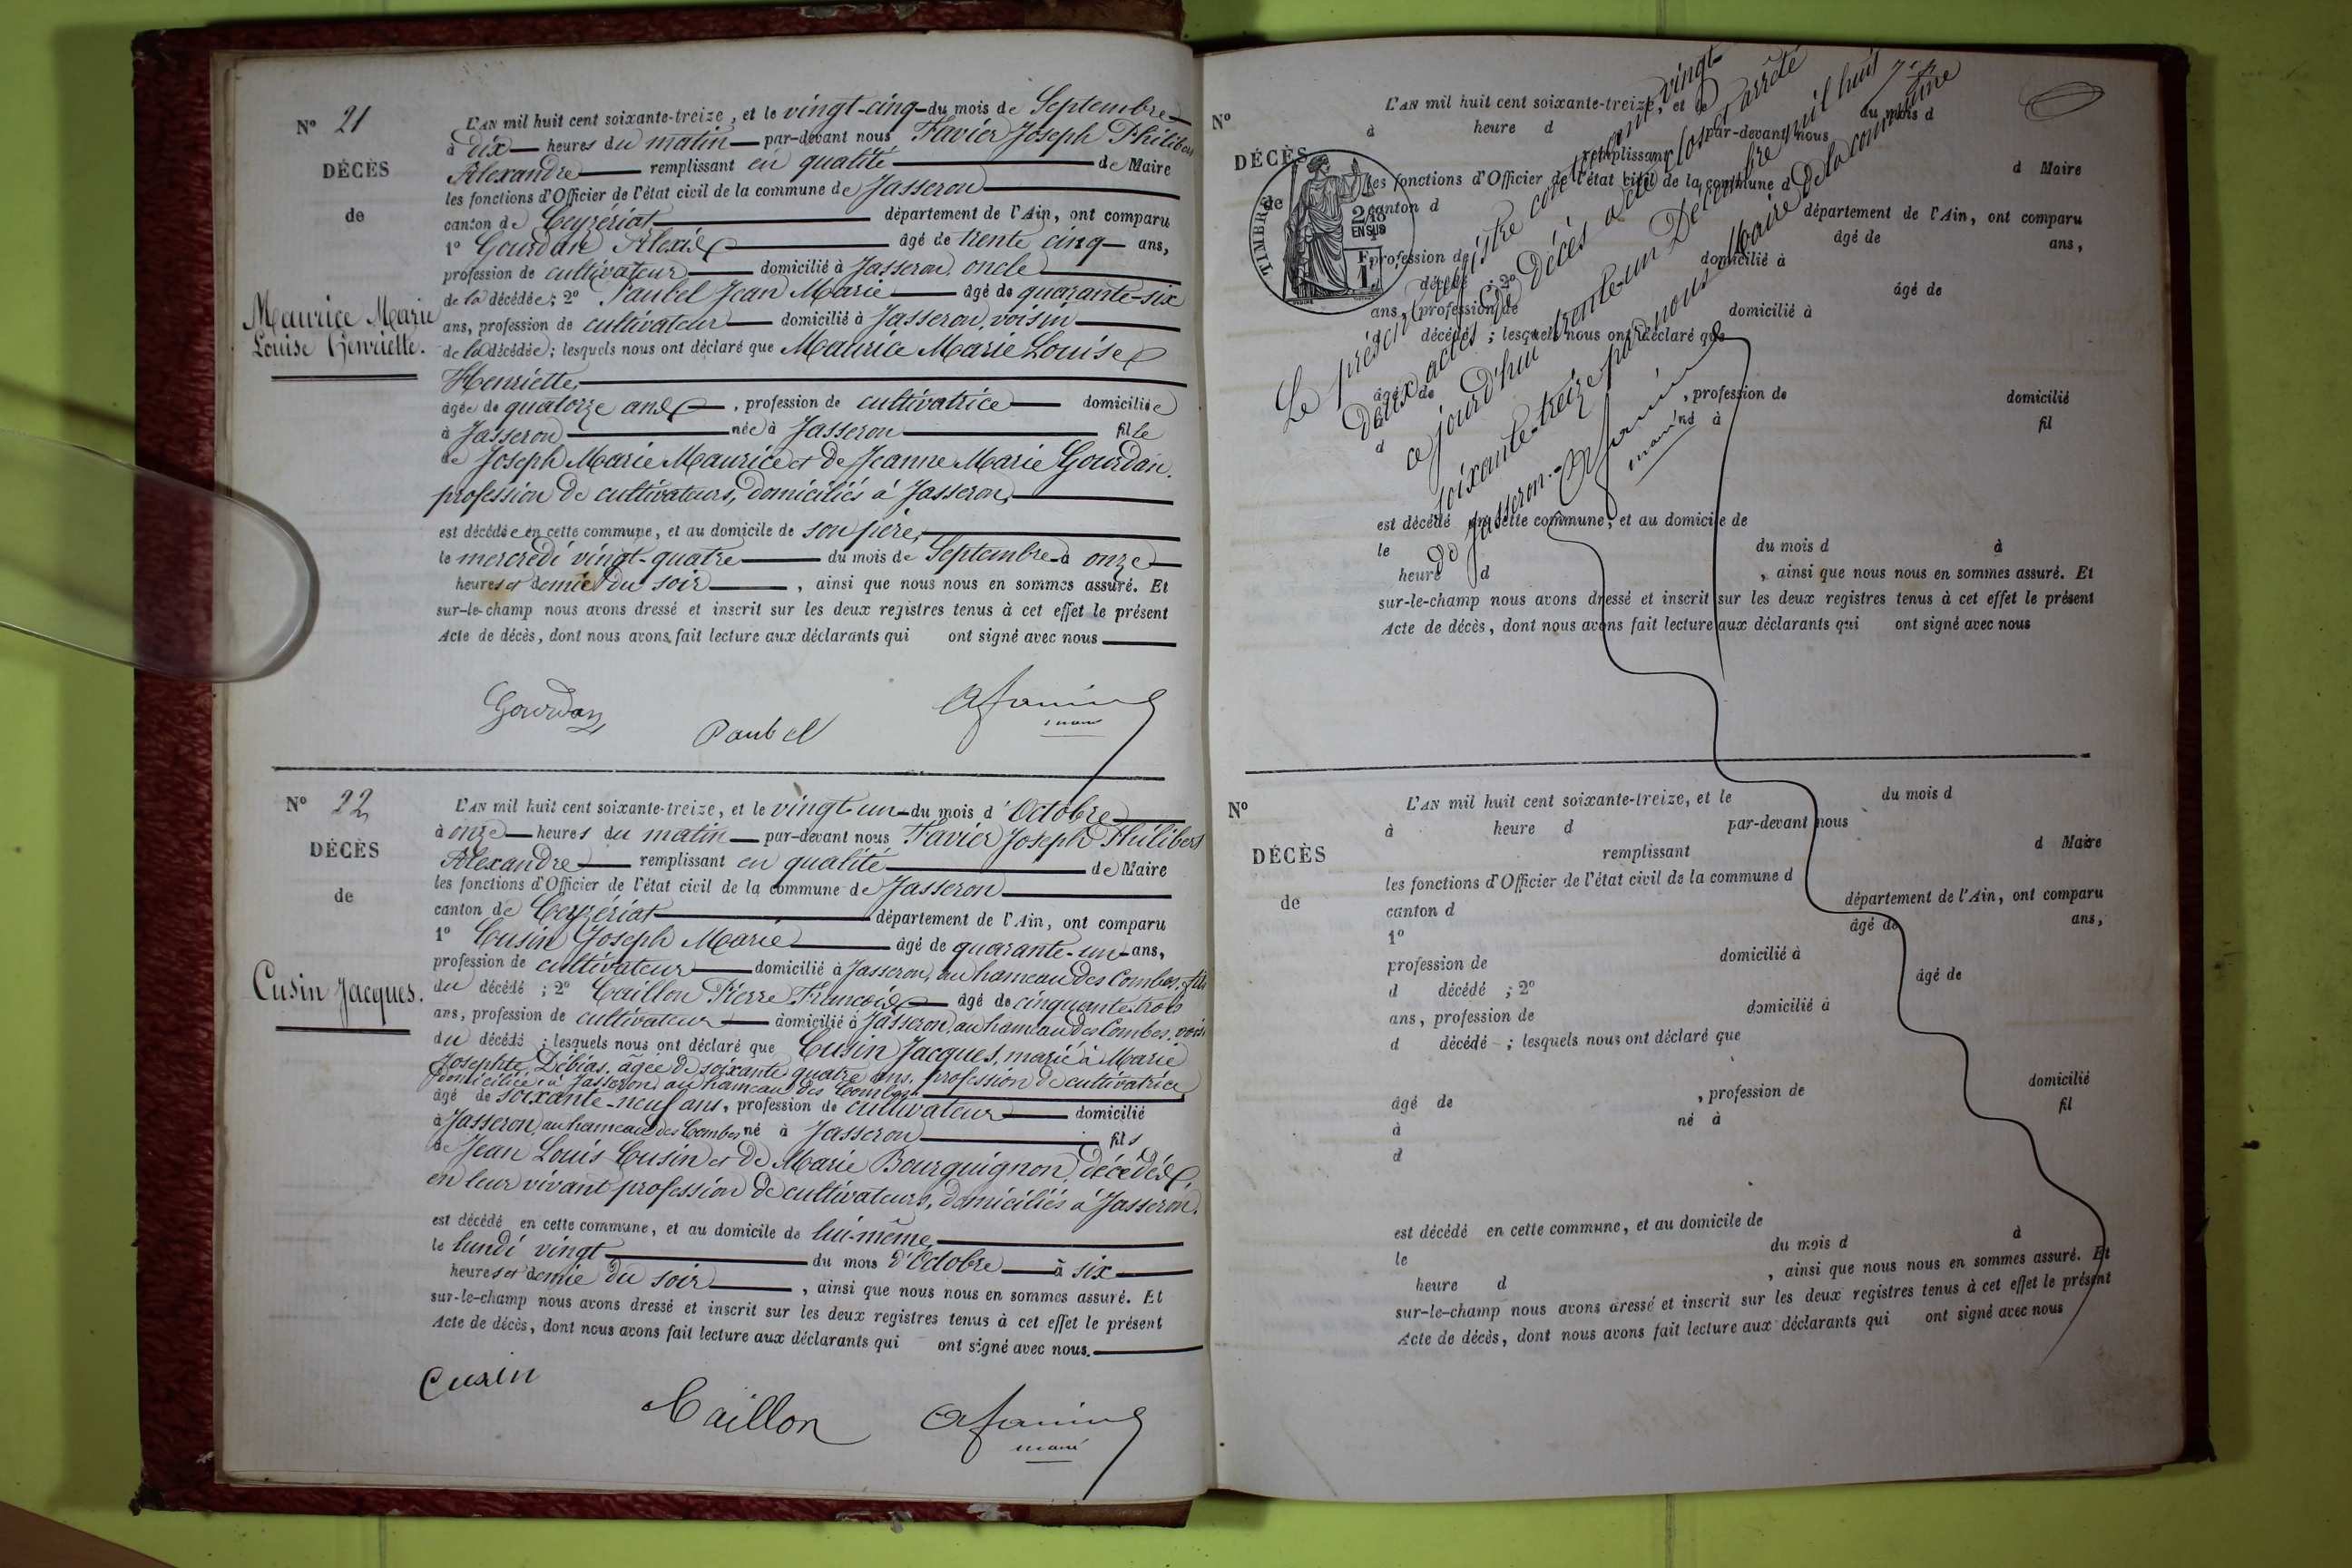 N° 21
DÉCÈS
de
Maurice Marie
Louise Henriette.
L'AN mil huit cent soixante-treize, et le vingt-cinq du mois de Septembre
à dix heures du matin par-devant nous Favier Joseph Philibert
Alexandre remplissant en qualité de Maire
les fonctions d'Officier de l'état civil de la commune de Jasseron
canton de Ceyzériat département de l'Ain, ont comparu
1° Gourdan Alexis âgé de trente cinq ans,
profession de cultivateur domicilié à Jasseron, oncle
de la décédée; 2° Paubel Jean Marie âgé de quarante-six
ans, profession de cultivateur domicilié à Jasseron, voisin
de la décédée; lesquels nous ont déclaré que Maurice Marie Louise
Henriette,
âgée de quatorze ans, profession de cultivatrice domiciliée
à Jasseron née à Jasseron fille
de Joseph Marie Maurice et de Jeanne Marie Gourdan.
profession de cultivateurs, domiciliés à Jasseron,
est décédée en cette commune, et au domicile de son père,
le mercredi vingt-quatre du mois de Septembre à onze
heures et demie du soir, ainsi que nous nous en sommes assuré. Et
sur-le-champ nous avons dressé et inscrit sur les deux registres tenus à cet effet le présent
Acte de décès, dont nous avons fait lecture aux déclarants qui ont signé avec nous
Gourdan
Paubel
N° 22
DÉCÈS
de
Cusin Jacques.
L'AN mil huit cent soixante-treize, et le vingt-un du mois d'Octobre
à onze heures du matin par-devant nous Favier Joseph Philibert
Alexandre remplissant en qualité de Maire
les fonctions d'Officier de l'état civil de la commune de Jasseron
canton de Ceyzériat département de l'Ain, ont comparu
1° Cusin Joseph Marie âgé de quarante-un ans,
profession de cultivateur domicilié à Jasseron, au hameau des Combes, fils
du décédé ; 2° Caillon Pierre François âgé de cinquante-trois
ans, profession de cultivateur domicilié à Jasseron, au hameau des Combes, voisin
du décédé ; lesquels nous ont déclaré que Cusin Jacques, marié à Marie
Josephte Débias, âgée de soixante quatre ans, profession de cultivatrice
domiciliée à Jasseron, au hameau des Combes
âgé de soixante-neuf ans, profession de cultivateur domicilié
à Jasseron, au hameau des Combes né à Jasseron fils
de Jean Louis Cusin et de Marie Bourguignon, décédés,
en leur vivant profession de cultivateurs, domiciliés à Jasseron.
est décédé en cette commune, et au domicile de lui-même
le lundi vingt du mois d'Octobre à six
heures et demie du soir, ainsi que nous nous en sommes assuré. Et
sur-le-champ nous avons dressé et inscrit sur les deux registres tenus à cet effet le présent
Acte de décès, dont nous avons fait lecture aux déclarants qui ont signé avec nous.
Cusin
Caillon
maire
N°
DÉCÈS
de
TIMBRE
2/10
EN SUS
L'AN mil huit cent soixante-treize, et le du mois d
à heure d par-devant nous
remplissant d Maire
les fonctions d'Officier de l'état civil de la commune d
canton d département de l'Ain, ont comparu
âgé de ans,
profession de domicilié à
décédé ; 2° âgé de
ans, profession de domicilié à
décédé ; lesquels nous ont déclaré que
âgé de , profession de domicilié
d né à fil
est décédé en cette commune, et au domicile de
le du mois d à
heure d , ainsi que nous nous en sommes assuré. Et
sur-le-champ nous avons dressé et inscrit sur les deux registres tenus à cet effet le présent
Acte de décès, dont nous avons fait lecture aux déclarants qui ont signé avec nous
Le présent registre contenant vingt-
deux actes de Décès a été clos et arrêté
ce jourd'hui trente-un Décembre mil huit
soixante-treize par nous Maire de la commune
de Jasseron.
N°
DÉCÈS
de
L'AN mil huit cent soixante-treize, et le du mois d
à heure d par-devant nous
remplissant d Maire
les fonctions d'Officier de l'état civil de la commune d
canton d département de l'Ain, ont comparu
1° âgé de ans,
profession de domicilié à
d décédé ; 2° âgé de
ans, profession de domicilié à
d décédé ; lesquels nous ont déclaré que
âgé de , profession de domicilié
à né à fil
d
est décédé en cette commune, et au domicile de
le du mois d à
heure d , ainsi que nous nous en sommes assuré. Et
sur-le-champ nous avons dressé et inscrit sur les deux registres tenus à cet effet le présent
Acte de décès, dont nous avons fait lecture aux déclarants qui ont signé avec nous